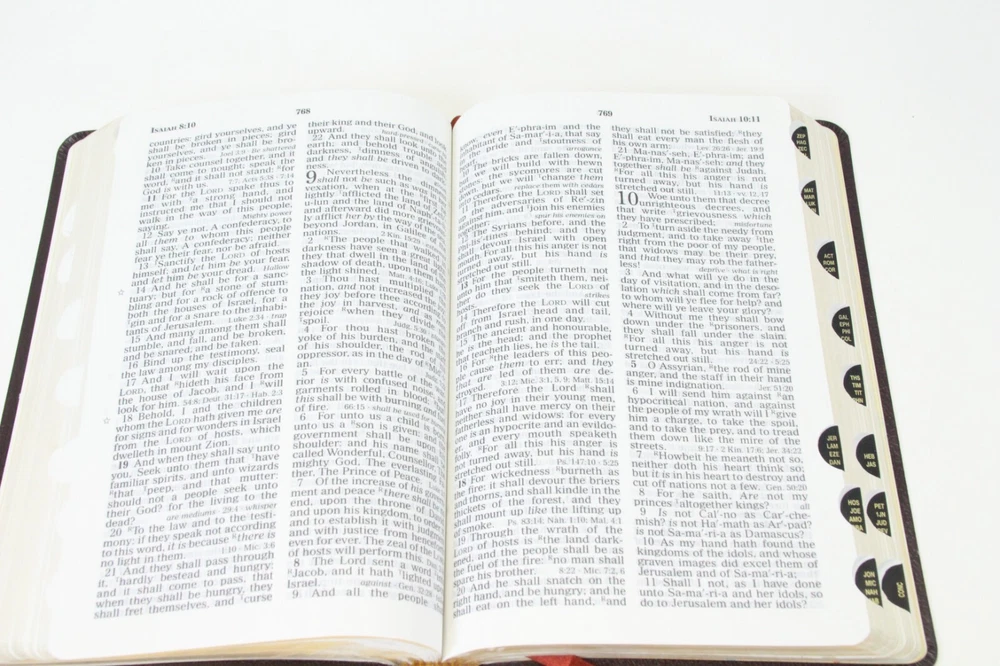 ISAIAH 8:10
768
countries: gird yourselves, and ye
shall be broken in pieces; gird
yourselves, and ye shall be bro-
ken in pieces.
10 Take counsel together, and it
shall come to nought; speak the
word, and it shall not stand: for
God is with us.
11 For the LORD spake thus to
me with a strong hand, and
instructed me that I should not
walk in the way of this people,
saying, Mighty power
12 Say ye not, A confederacy, to
all them to whom this people
shall say, A confederacy; neither
fear ye their fear, nor be afraid.
13 Sanctify the LORD of hosts
himself; and let him be your fear,
and let him be your dread. Hallow
14 And he shall be for a sanc-
tuary; but for a stone of stum-
bling and for a rock of offence to
both the houses of Israel, for a
gin and for a snare to the inhabi-
tants of Jerusalem. Luke 2:34 · trap
15 And many among them shall
stumble, and fall, and be broken,
and be snared, and be taken.
16 Bind up the testimony, seal
the law among my disciples.
17 And I will wait upon the
LORD, that hideth his face from
the house of Jacob, and I will
look for him. 54:8; Deut. 31:17 · Hab. 2:3
18 Behold, I and the children
whom the LORD hath given me are
for signs and for wonders in Israel
from the LORD of hosts, which
dwelleth in mount Zion.
19 And when they shall say unto
you, Seek unto them that have
familiar spirits, and unto wizards
that peep, and that mutter:
should not a people seek unto
their God? for the living to the
dead? are mediums · 29:4 · whisper
20 To the law and to the testi-
mony: if they speak not according
to this word, it is because there is
no light in them. 1:10 · Mic. 3:6
21 And they shall pass through
it, hardly bestead and hungry:
and it shall come to pass, that
when they shall be hungry, they
shall fret themselves, and curse
their king and their God, and
upward.
22 And they shall look
earth; and behold trouble
darkness, dimness of
and they shall be driven
ness.
9 Nevertheless the dimness
shall not be such as was
vexation, when at the
lightly afflicted the land of
u-lun and the land of
and afterward did more
ly afflict her by the way of
beyond Jordan, in Galilee
nations.
2 The people that walked
darkness have seen a great
they that dwell in the land
shadow of death, upon them
the light shined.
3 Thou hast multiplied
nation, and not increased the
joy: they joy before thee according
the joy in harvest, and as
rejoice when they divide
spoil.
4 For thou hast broken
yoke of his burden, and the
of his shoulder, the rod of
oppressor, as in the day of
5 For every battle of the
rior is with confused noise,
garments rolled in blood;
this shall be with burning and
of fire. 66:15
6 For unto us a child is
unto us a son is given: and
government shall be upon
shoulder: and his name
called Wonderful, Counsellor
mighty God, The everlasting
ther, The Prince of Peace.
7 Of the increase of his
ment and peace there shall
end, upon the throne of
and upon his kingdom, to order
and to establish it with judgment
and with justice from henceforth
even for ever. The zeal of the
of hosts will perform this.
8 The Lord sent a word
Jacob, and it hath lighted
Israel.
9 And all the people
769
ISAIAH 10:11
even E'-phra-im and the
inhabitant of Sa-mar'-i-a, that say
the pride and stoutness of
arrogance
The bricks are fallen down,
we will build with hewn
the sycomores are cut
but we will change them
cedars. replace them with cedars
Therefore the LORD shall set
the adversaries of Re'-zin
against him, and join his enemies
spur his enemies on
The Syrians before, and the
Phi-lis'-tines behind; and they
devour Israel with open
For all this his anger is not
turned away, but his hand is
stretched out still.
For the people turneth not
unto him that smiteth them, nei-
ther do they seek the LORD of
strikes
Therefore the LORD will cut
from Israel head and tail,
branch and rush, in one day.
The ancient and honourable,
he is the head; and the prophet
that teacheth lies, he is the tail.
16 For the leaders of this peo-
ple cause them to err; and they
that are led of them are de-
3:12; Mic. 3:1, 5, 9; Matt. 15:14
17 Therefore the Lord shall
have no joy in their young men,
shall have mercy on their
fatherless and widows: for every
one is an hypocrite and an evildo-
er, and every mouth speaketh
folly. For all this his anger is
not turned away, but his hand is
stretched out still. Ps. 147:10 · 5:25
18 For wickedness burneth as
the fire: it shall devour the briers
and thorns, and shall kindle in the
thickets of the forest, and they
shall mount up like the lifting up
of smoke. Ps. 83:14; Nah. 1:10; Mal. 4:1
19 Through the wrath of the
LORD of hosts is the land dark-
ened, and the people shall be as
the fuel of the fire: no man shall
spare his brother. 8:22 · Mic. 7:2, 6
20 And he shall snatch on the
right hand, and be hungry; and he
shall eat on the left hand, and
they shall not be satisfied: they
shall eat every man the flesh of
his own arm: Lev. 26:26 · Jer. 19:9
21 Ma-nas'-seh, E'-phra-im; and
E'-phra-im, Ma-nas'-seh: and they
together shall be against Judah.
For all this his anger is not
turned away, but his hand is
stretched out still. 11:13 · vv. 12, 17
10 Woe unto them that decree
unrighteous decrees, and
that write grievousness which
they have prescribed; misfortune
2 To turn aside the needy from
judgment, and to take away the
right from the poor of my people,
that widows may be their prey,
and that they may rob the father-
less! deprive · what is right
3 And what will ye do in the
day of visitation, and in the deso-
lation which shall come from far?
to whom will ye flee for help? and
where will ye leave your glory?
4 Without me they shall bow
down under the prisoners, and
they shall fall under the slain.
For all this his anger is not
turned away, but his hand is
stretched out still. 24:22 · 5:25
5 O Assyrian, the rod of mine
anger, and the staff in their hand
is mine indignation. Jer. 51:20
6 I will send him against an
hypocritical nation, and against
the people of my wrath will I give
him a charge, to take the spoil,
and to take the prey, and to tread
them down like the mire of the
streets. 9:17 · 2 Kin. 17:6; Jer. 34:22
7 Howbeit he meaneth not so,
neither doth his heart think so;
but it is in his heart to destroy and
cut off nations not a few. Gen. 50:20
8 For he saith, Are not my
princes altogether kings? all
9 Is not Cal'-no as Car'-che-
mish? is not Ha'-math as Ar'-pad?
is not Sa-ma'-ri-a as Damascus?
10 As my hand hath found the
kingdoms of the idols, and whose
graven images did excel them of
Jerusalem and of Sa-ma'-ri-a;
11 Shall I not, as I have done
unto Sa-ma'-ri-a and her idols, so
do to Jerusalem and her idols?
ZEP
HAG
ZEC
MAT
MAR
LUK
ACT
ROM
COR
GAL
EPH
PHI
COL
THS
TIM
TIT
PHN
JER
LAM
EZE
DAN
HEB
JAS
HOS
JOE
AMO
PET
1JN
JUD
REV
JON
MIC
NAH
HAB
CONC